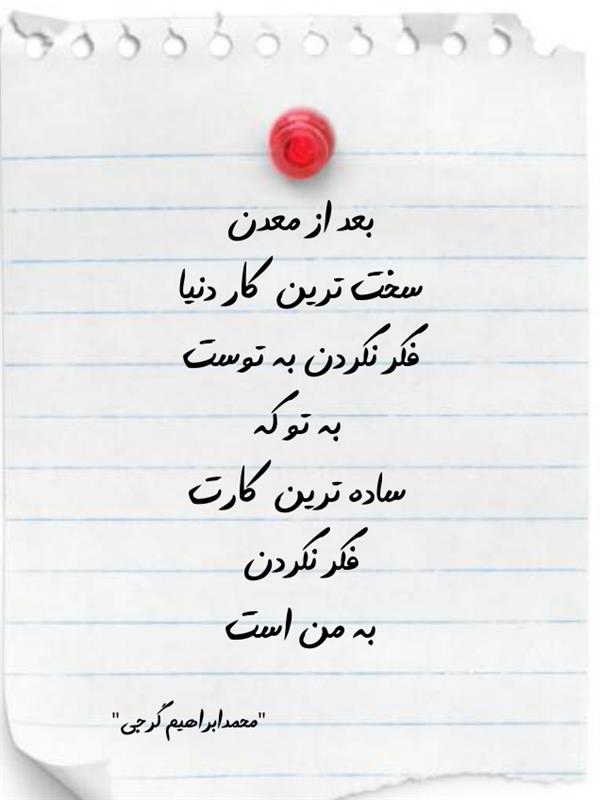 بعد از معدن
سخت ترین کار دنیا
فکر نکردن به توست
به تو که
ساده ترین کارت
فکر نکردن
به من است
"محمدابراهیم گرجی"